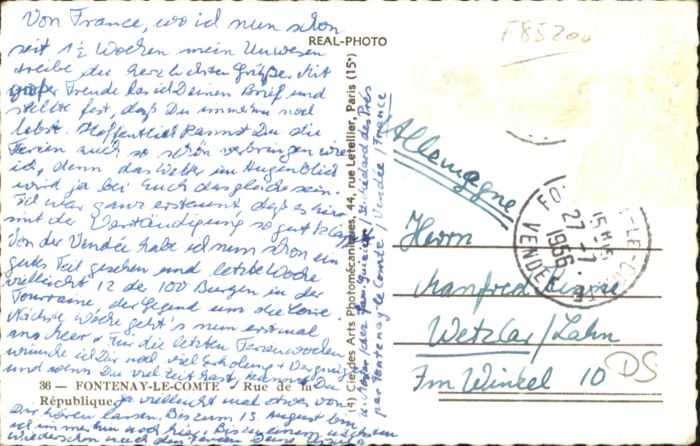 Von France, wo ich nun schon
seit 1½ Wochen mein Unwesen
treibe die herzlichsten Grüße. Mit
großer Freude las ich Deinen Brief und
stellte fest, daß Du immerhin noch
lebst. Hoffentlich kannst Du die
Ferien auch so schön verbringen wie
ich, denn das Wetter im Augenblick
wird ja bei Euch das gleiche sein.
Ich war ganz erstaunt, daß es hier
mit der Verständigung so gut klappt
Von der Vendée habe ich nun schon ein
gutes Teil gesehen und letzte Woche
vielleicht 12 der 100 Burgen in der
Touraine, der Gegend um die Loire.
Nächste Woche geht's nun erstmal
ans Meer. Für die letzten Ferienwochen
wünsche ich Dir noch viel Erholung + Vergnügen
und wenn Du viel Zeit hast, kannst Du
ja vielleicht mal etwas von
Dir hören lassen. Bis zum 13. August bin
ich immerhin noch hier. Bis zu einem
Wiedersehn nach den Ferien Deine
36 — FONTENAY-LE-COMTE - Rue de la
République
REAL-PHOTO
(4) Cie des Arts Photomécaniques, 44, rue Letellier, Paris (15e)
St. Médard des Prés
par Fontenay le Comte / Vendée / France
F85200
Allemagne
15H15
27-7
1956
VENDEE
Herrn
Manfred
Wetzlar/Lahn
Im Winkel 10
DS